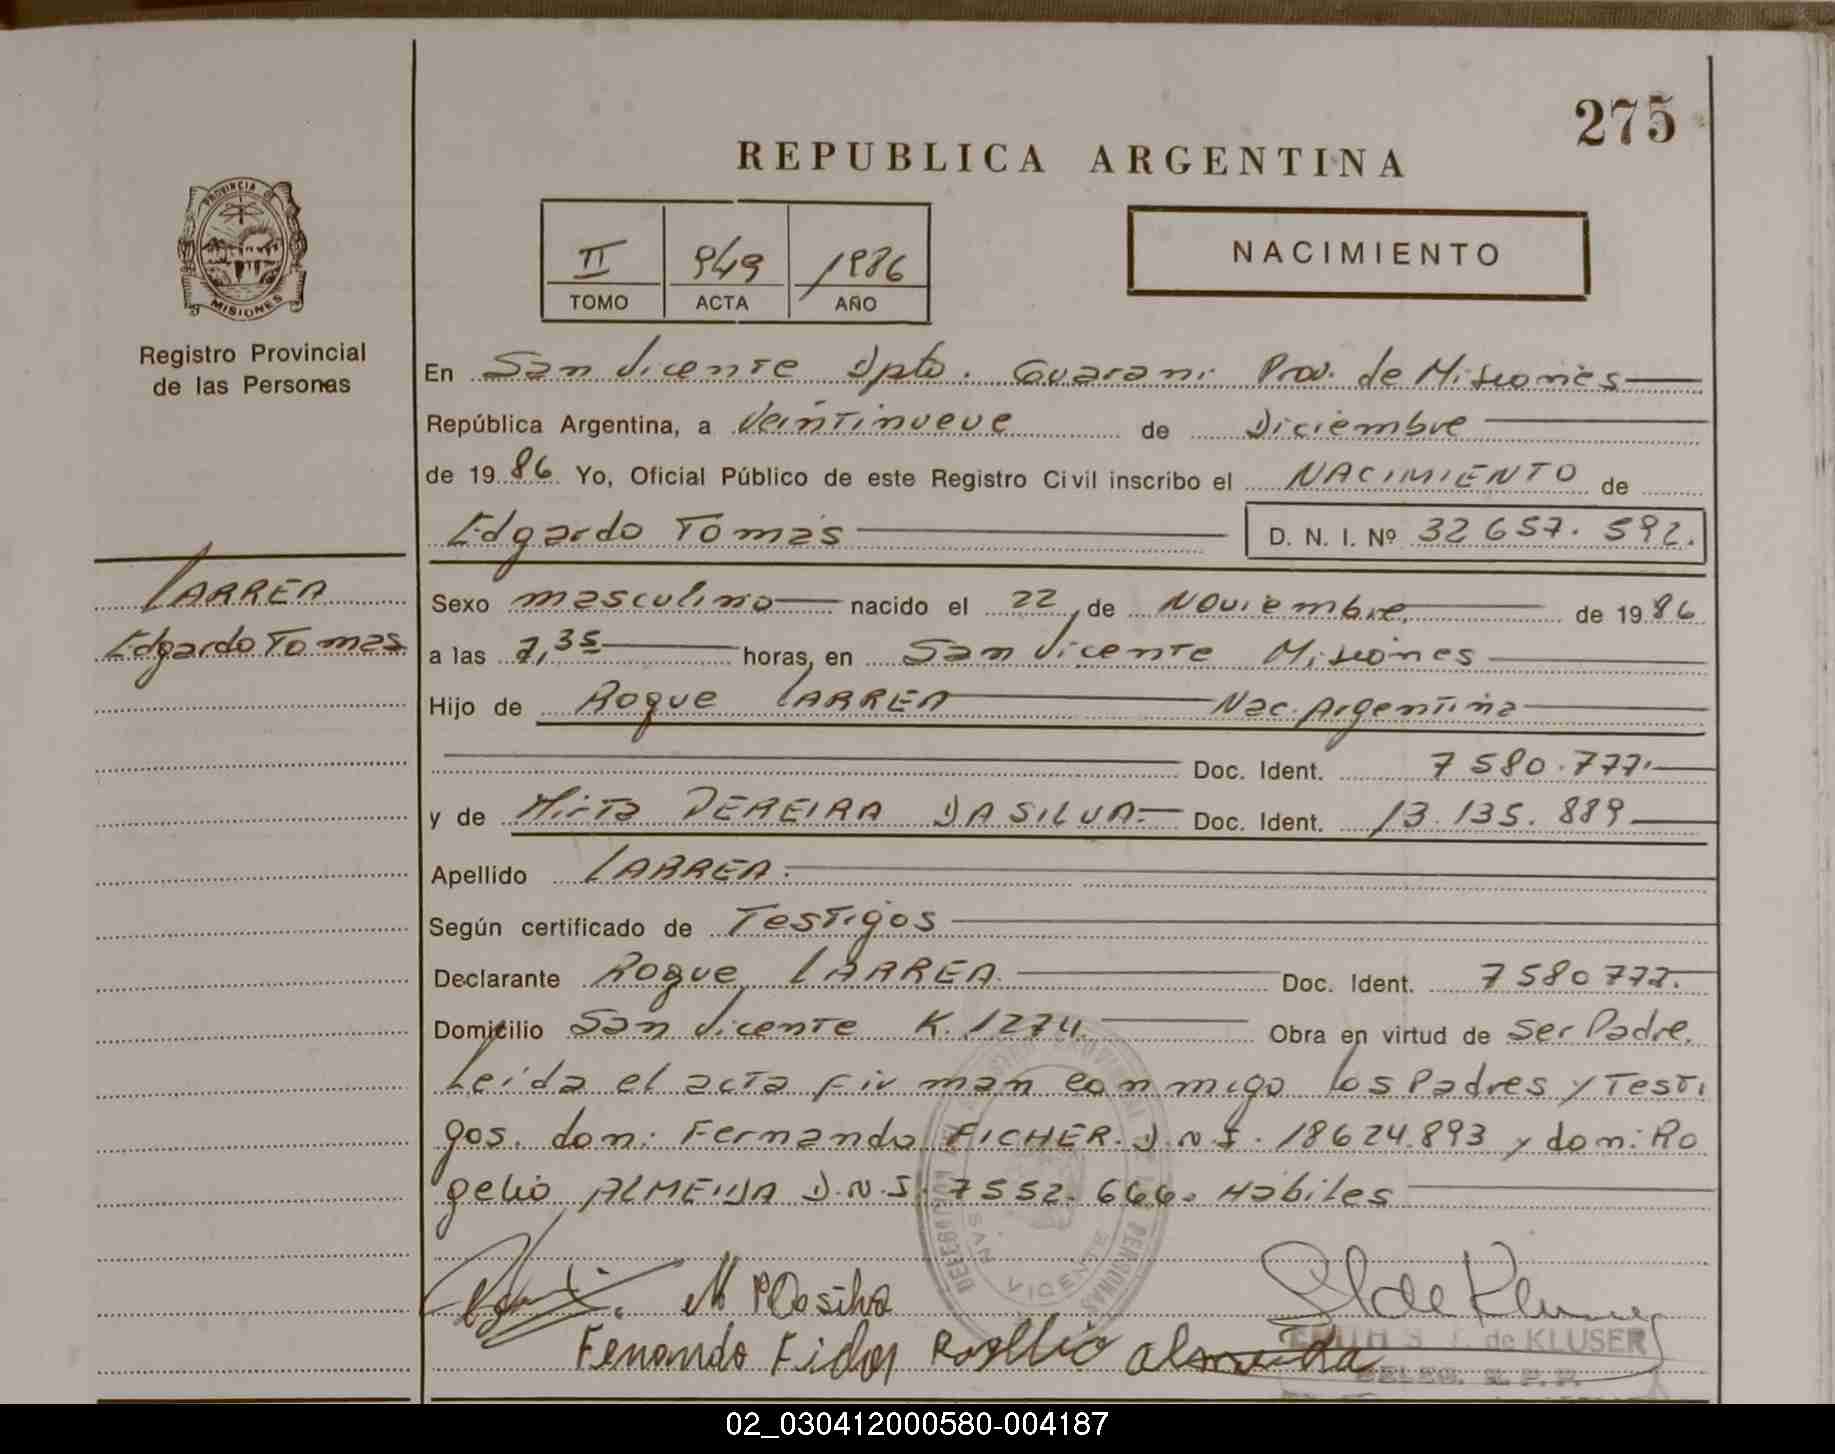 275
REPUBLICA ARGENTINA
PROVINCIA
MISIONES
Registro Provincial
de las Personas
II 949 1986
TOMO ACTA AÑO
NACIMIENTO
En San Vicente Dpto. Guarani Prov. de Misiones
República Argentina, a Veintinueve de Diciembre
de 1986 Yo, Oficial Público de este Registro Civil inscribo el NACIMIENTO de
Edgardo Tomás D. N. I. Nº 32 657. 592.
LARREA
Edgardo Tomas
Sexo masculino nacido el 22 de Noviembre de 1986
a las 7,35 horas, en San Vicente Misiones
Hijo de Roque LARREA Nac. Argentina
Doc. Ident. 7 580.777.
y de Mirta PEREIRA DA SILVA.- Doc. Ident. 13.135.889
Apellido LARREA.
Según certificado de Testigos
Declarante Roque LARREA. Doc. Ident. 7580777.
Domicilio San Vicente K. 1274. Obra en virtud de Ser Padre.
Leída el acta firman conmigo los Padres y Testi
gos. don: Fernando FICHER. D.N.I. 18624.893 y don: Ro
gelio ALMEIDA D.N.I. 7552.666. Habiles
SAN VICENTE
M P Dasilva
Fernando Rogelio Almeida
EDITH S. de KLUSER
DELEG. R. P. P.
02_030412000580-004187